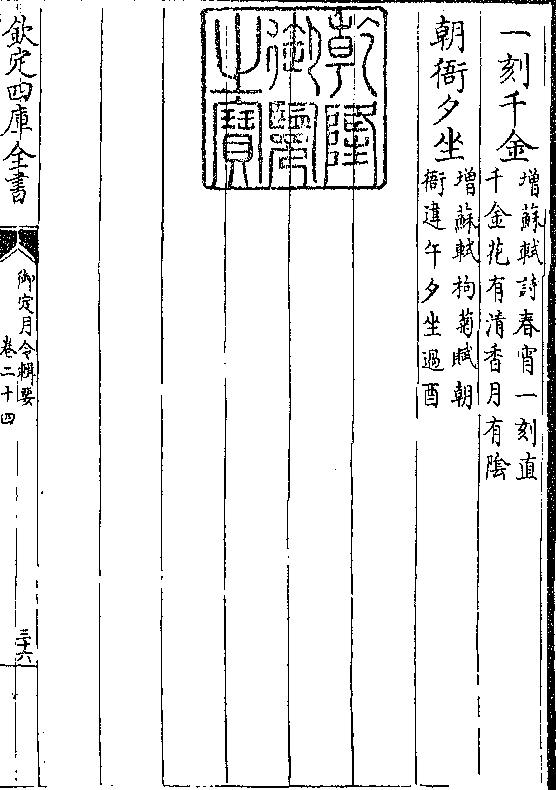 一刻千金
增蘇軾詩春宵一刻直
千金花有清香月有陰
朝衙夕坐
增蘇軾枸菊賦朝
衙達午夕坐過酉
乾隆
御覽
之寶
欽定四庫全書
御定月令輯要
卷二十四
三十六